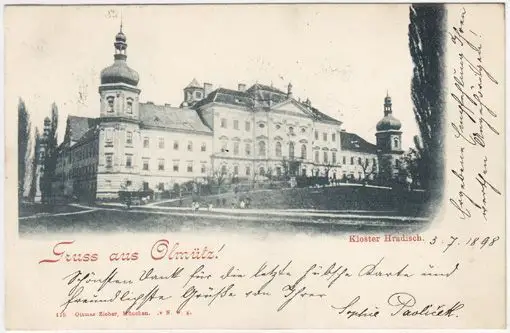 Gruss aus Olmütz!
Kloster Hradisch.
3. 7. 1898
Schönsten Dank für die letzte hübsche Karte und
freundlichste Grüße von Ihrer
Sophie Pavliček.
Ottmar Zieher, München.